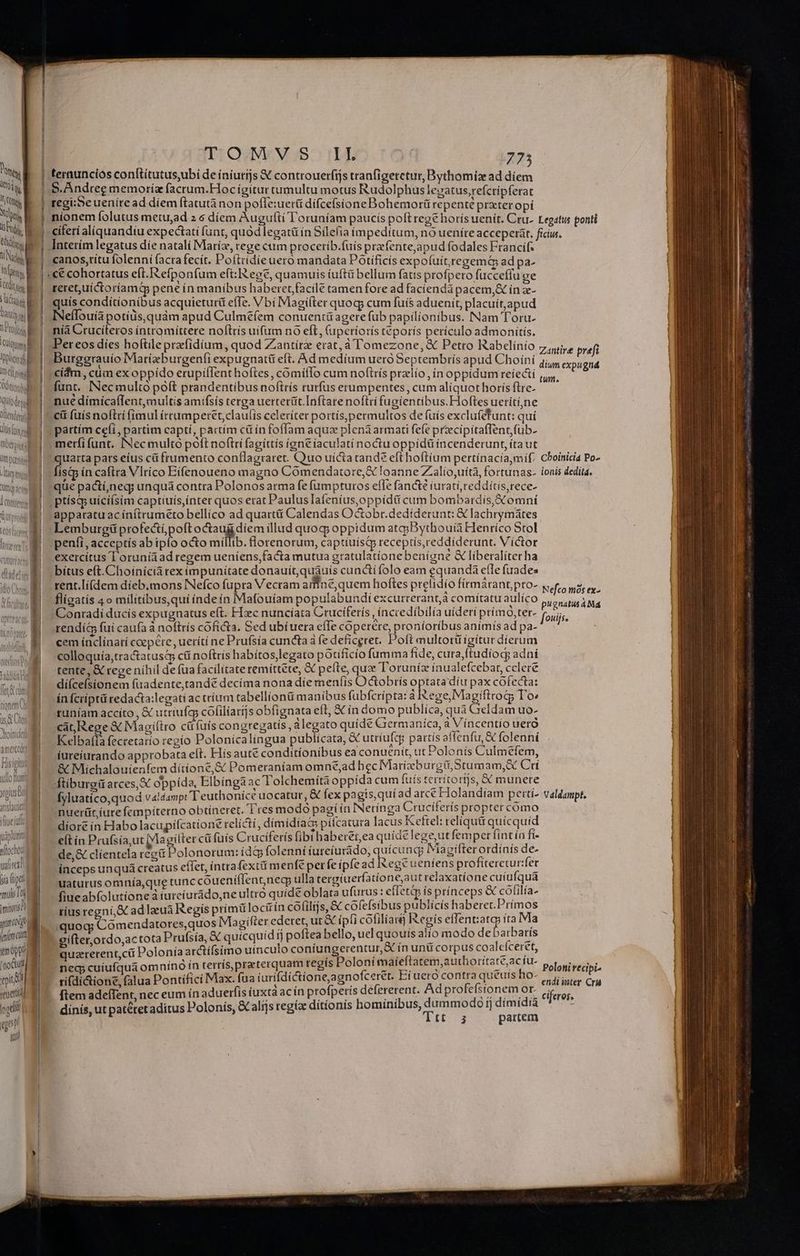 TOMVS II. 773
ternuncios constitutus, ubi de iniurijs & controuersijs transigeretur, Bythomiæ ad diem
S. Andreæ memoriæ sacrum. Hoc igitur tumultu motus Rudolphus legatus, rescripserat
regi: Se uenire ad diem statutā non posse: uerū discessione Bohemorū repente præter opi
nionem solutus metu, ad 26 diem Augusti Toruniam paucis post regē horis uenit. Cru-
Legatus ponti
ciferi aliquandiu expectati sunt, quòd legatū in Silesia impeditum, nō uenire acceperāt.
ficius.
Interim legatus die natali Mariæ, rege cum procerib. suis præsente, apud sodales Francis
canos, ritu solenni sacra fecit. Postridie uero mandata Pōtificis exposuit, regemq́; ad pa-
cē cohortatus est. Responsum est: Regē, quamuis iustū bellum satis prospero successu ge
reret, uictoriamq́; penè in manibus haberet, facilē tamen fore ad faciendā pacem, & in æ-
quis conditionibus acquieturū esse. Vbi Magister quoq; cum suis aduenit, placuit, apud
Nessouiā potiùs, quàm apud Culmēsem conuentū agere sub papilionibus. Nam Toru-
niā Cruciferos intromittere nostris uisum nō est, superioris tēporis periculo admonitis.
Per eos dies hostile præsidium, quod Zantiræ erat, à Tomezone, & Petro Rabelinio
Zantiræ præsi
Burggrauio Mariæburgensi expugnatū est. Ad medium uerò Septembris apud Choini
dium expugna
ciām, cùm ex oppido erupissent hostes, cōmisso cum nostris prælio, in oppidum reiecti
tum.
sunt. Nec multò pòst prandentibus nostris rursus erumpentes, cum aliquot horis stre-
nuè dimicassent, multis amissis terga uerterūt. Instare nostri fugientibus. Hostes ueriti, ne
cū suis nostri simul irrumperēt, clausis celeriter portis, permultos de suis excluserunt: qui
partim cæsi, partim capti, partim cū in fossam aquæ plenā armati sese præcipitassent, sub-
mersi sunt. Nec multò pòst nostri sagittis ignē iaculati noctu oppidū incenderunt, ita ut
quarta pars eius cū frumento conflagraret. Quo uicta tandē est hostium pertinacia, mis-
Choinicia Po-
sisq́; in castra Vlrico Eisenoueno magno Cōmendatore, & Ioanne Zalio, uitā, fortunas-
lonis dedita.
que pacti, neq; unquā contra Polonos arma se sumpturos esse sanctè iurati, redditis, rece-
ptisq́; uicissim captiuis, inter quos erat Paulus Iasenius, oppidū cum bombardis, & omni
apparatu ac instrumēto bellico ad quartū Calendas Octobr. dediderunt: & lachrymātes
Lemburgū profecti, post octauū diem illud quoq; oppidum atq; Bythouiā Henrico Stol
pensi, acceptis ab ipso octo millib. florenorum, captiuisq́; receptis, reddiderunt. Victor
exercitus Toruniā ad regem ueniens, facta mutua gratulatione benignè & liberaliter ha
bitus est. Choiniciā rex impunitate donauit, quāuis cuncti solo eam æquandā esse suade-
rent. Iisdem dieb. mons Nesco supra Vecram amnē, quem hostes præsidio firmárant, pro-
Nesco mōs ex-
fligatis 40 militibus, qui inde in Masouiam populabundi excurrerant, à comitatu aulico
pugnatus à Ma
Conradi ducis expugnatus est. Hæc nunciata Cruciferis, incredibilia uideri primò, ter-
souijs.
rendiq́; sui causa à nostris cōficta. Sed ubi uera esse cōperēre, pronioribus animis ad pa-
cem inclinari cœpêre, ueriti ne Prussia cuncta à se deficeret. Post multorū igitur dierum
colloquia, tractatusq́; cū nostris habitos, legato pōtificio summa fide, cura, studioq́; adni
tente, & rege nihil de sua facilitate remittēte, & peste, quæ Toruniæ inualescebat, celerē
discessionem suadente, tandē decima nona die mensis Octobris optata diu pax cōfecta:
in scriptū redacta: legati ac trium tabellionū manibus subscripta: à Rege, Magistroq́; To-
runiam accito, & utriusq; cōsiliarijs obsignata est, & in domo publica, quā Geldam uo-
cāt, Rege & Magistro cū suis congregatis, à legato quidē Germanica, à Vincentio uerò
Kelbassa secretario regio Polonica lingua publicata, & utriusq; partis assensu, & solenni
iureiurando approbata est. His autē conditionibus ea conuēnit, ut Polonis Culmēsem,
& Michalouiensem ditionē, & Pomeraniam omnē, ad hęc Mariæburgū, Stumam, & Cri
stiburgū arces, & oppida, Elbingā ac Tolchemitā oppida cum suis territorijs, & munere
syluatico, quod valdampt Teuthonicè uocatur, & sex pagis, qui ad arcē Holandiam perti-
Valdampt.
nuerūt, iure sempiterno obtineret. Tres modò pagi in Neringa Cruciferis propter cōmo
diorē in Habo lacu piscationē relicti, dimidiaq́; piscatura lacus Keftel: reliquū quicquid
est in Prussia, ut Magister cū suis Cruciferis sibi haberēt, ea quidē lege, ut semper sint in fi-
de, & clientela regū Polonorum: idq́; solenni iureiurādo, quicunq; Magister ordinis de-
inceps unquā creatus esset, intra sextū mensē per se ipse ad Regē ueniens profiteretur: ser
uaturus omnia, quę tunc cōuenissent, neq; ulla tergiuersatione, aut relaxatione cuiusquā
siue absolutione à iureiurādo, ne ultrò quidē oblata usurus: essetq́; is princeps & cōsilia-
rius regni, & ad læuā Regis primū locū in cōsilijs, & cōsessibus publicis haberet. Primos
quoq; Cōmendatores, quos Magister ederet, ut & ipsi cōsiliarij Regis essent: atq; ita Ma
gister, ordo, ac tota Prussia, & quicquid ij postea bello, uel quouis alio modo de barbaris
quærerent, cū Polonia arctissimo uinculo coniungerentur, & in unū corpus coalescerēt,
neq; cuiusquā omninò in terris, præterquam regis Poloni maiestatem, authoritatē, ac iu-
Poloni recipi-
risdictionē, salua Pontifici Max. sua iurisdictione, agnoscerēt. Ei uerò contra quēuis ho-
endi inter Cru
stem adessent, nec eum in aduersis iuxtà ac in prosperis desererent. Ad professionem or-
ciferos.
dinis, ut patēret aditus Polonis, & alijs regiæ ditionis hominibus, dummodo ij dimidiā
Ttt 3 partem